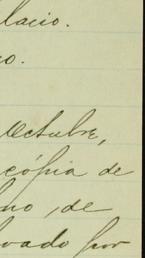 lacio.
o.
Octubre,
cópia de
no, de
vado por